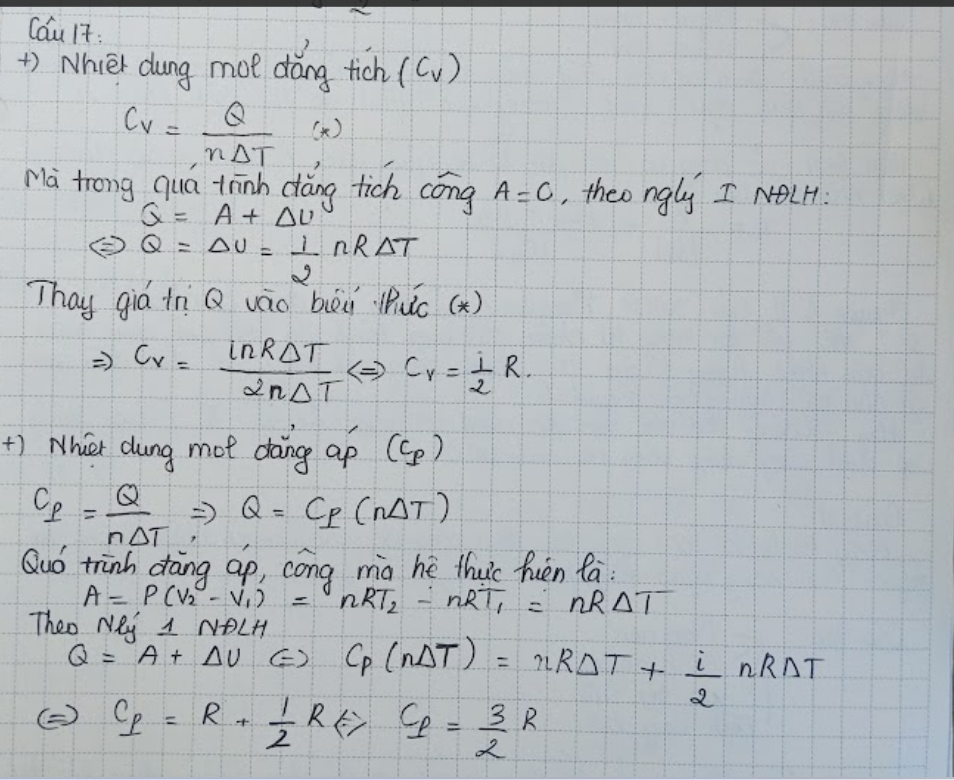 Câu 17:
+) Nhiệt dung mol đẳng tích (Cv)
Cv = Q / nΔT (*)
Mà trong quá trình đẳng tích công A = 0, theo nglý I NĐLH:
Q = A + ΔU
<=> Q = ΔU = i/2 nRΔT
Thay giá trị Q vào biểu thức (*)
=> Cv = inRΔT / 2nΔT <=> Cv = i/2 R.
+) Nhiệt dung mol đẳng áp (Cp)
Cp = Q / nΔT => Q = Cp (nΔT)
Quá trình đẳng áp, công mà hệ thực hiện là:
A = P(V2 - V1) = nRT2 - nRT1 = nRΔT
Theo Nlý 1 NĐLH
Q = A + ΔU <=> Cp (nΔT) = nRΔT + i/2 nRΔT
<=> Cp = R + 1/2 R <=> Cp = 3/2 R